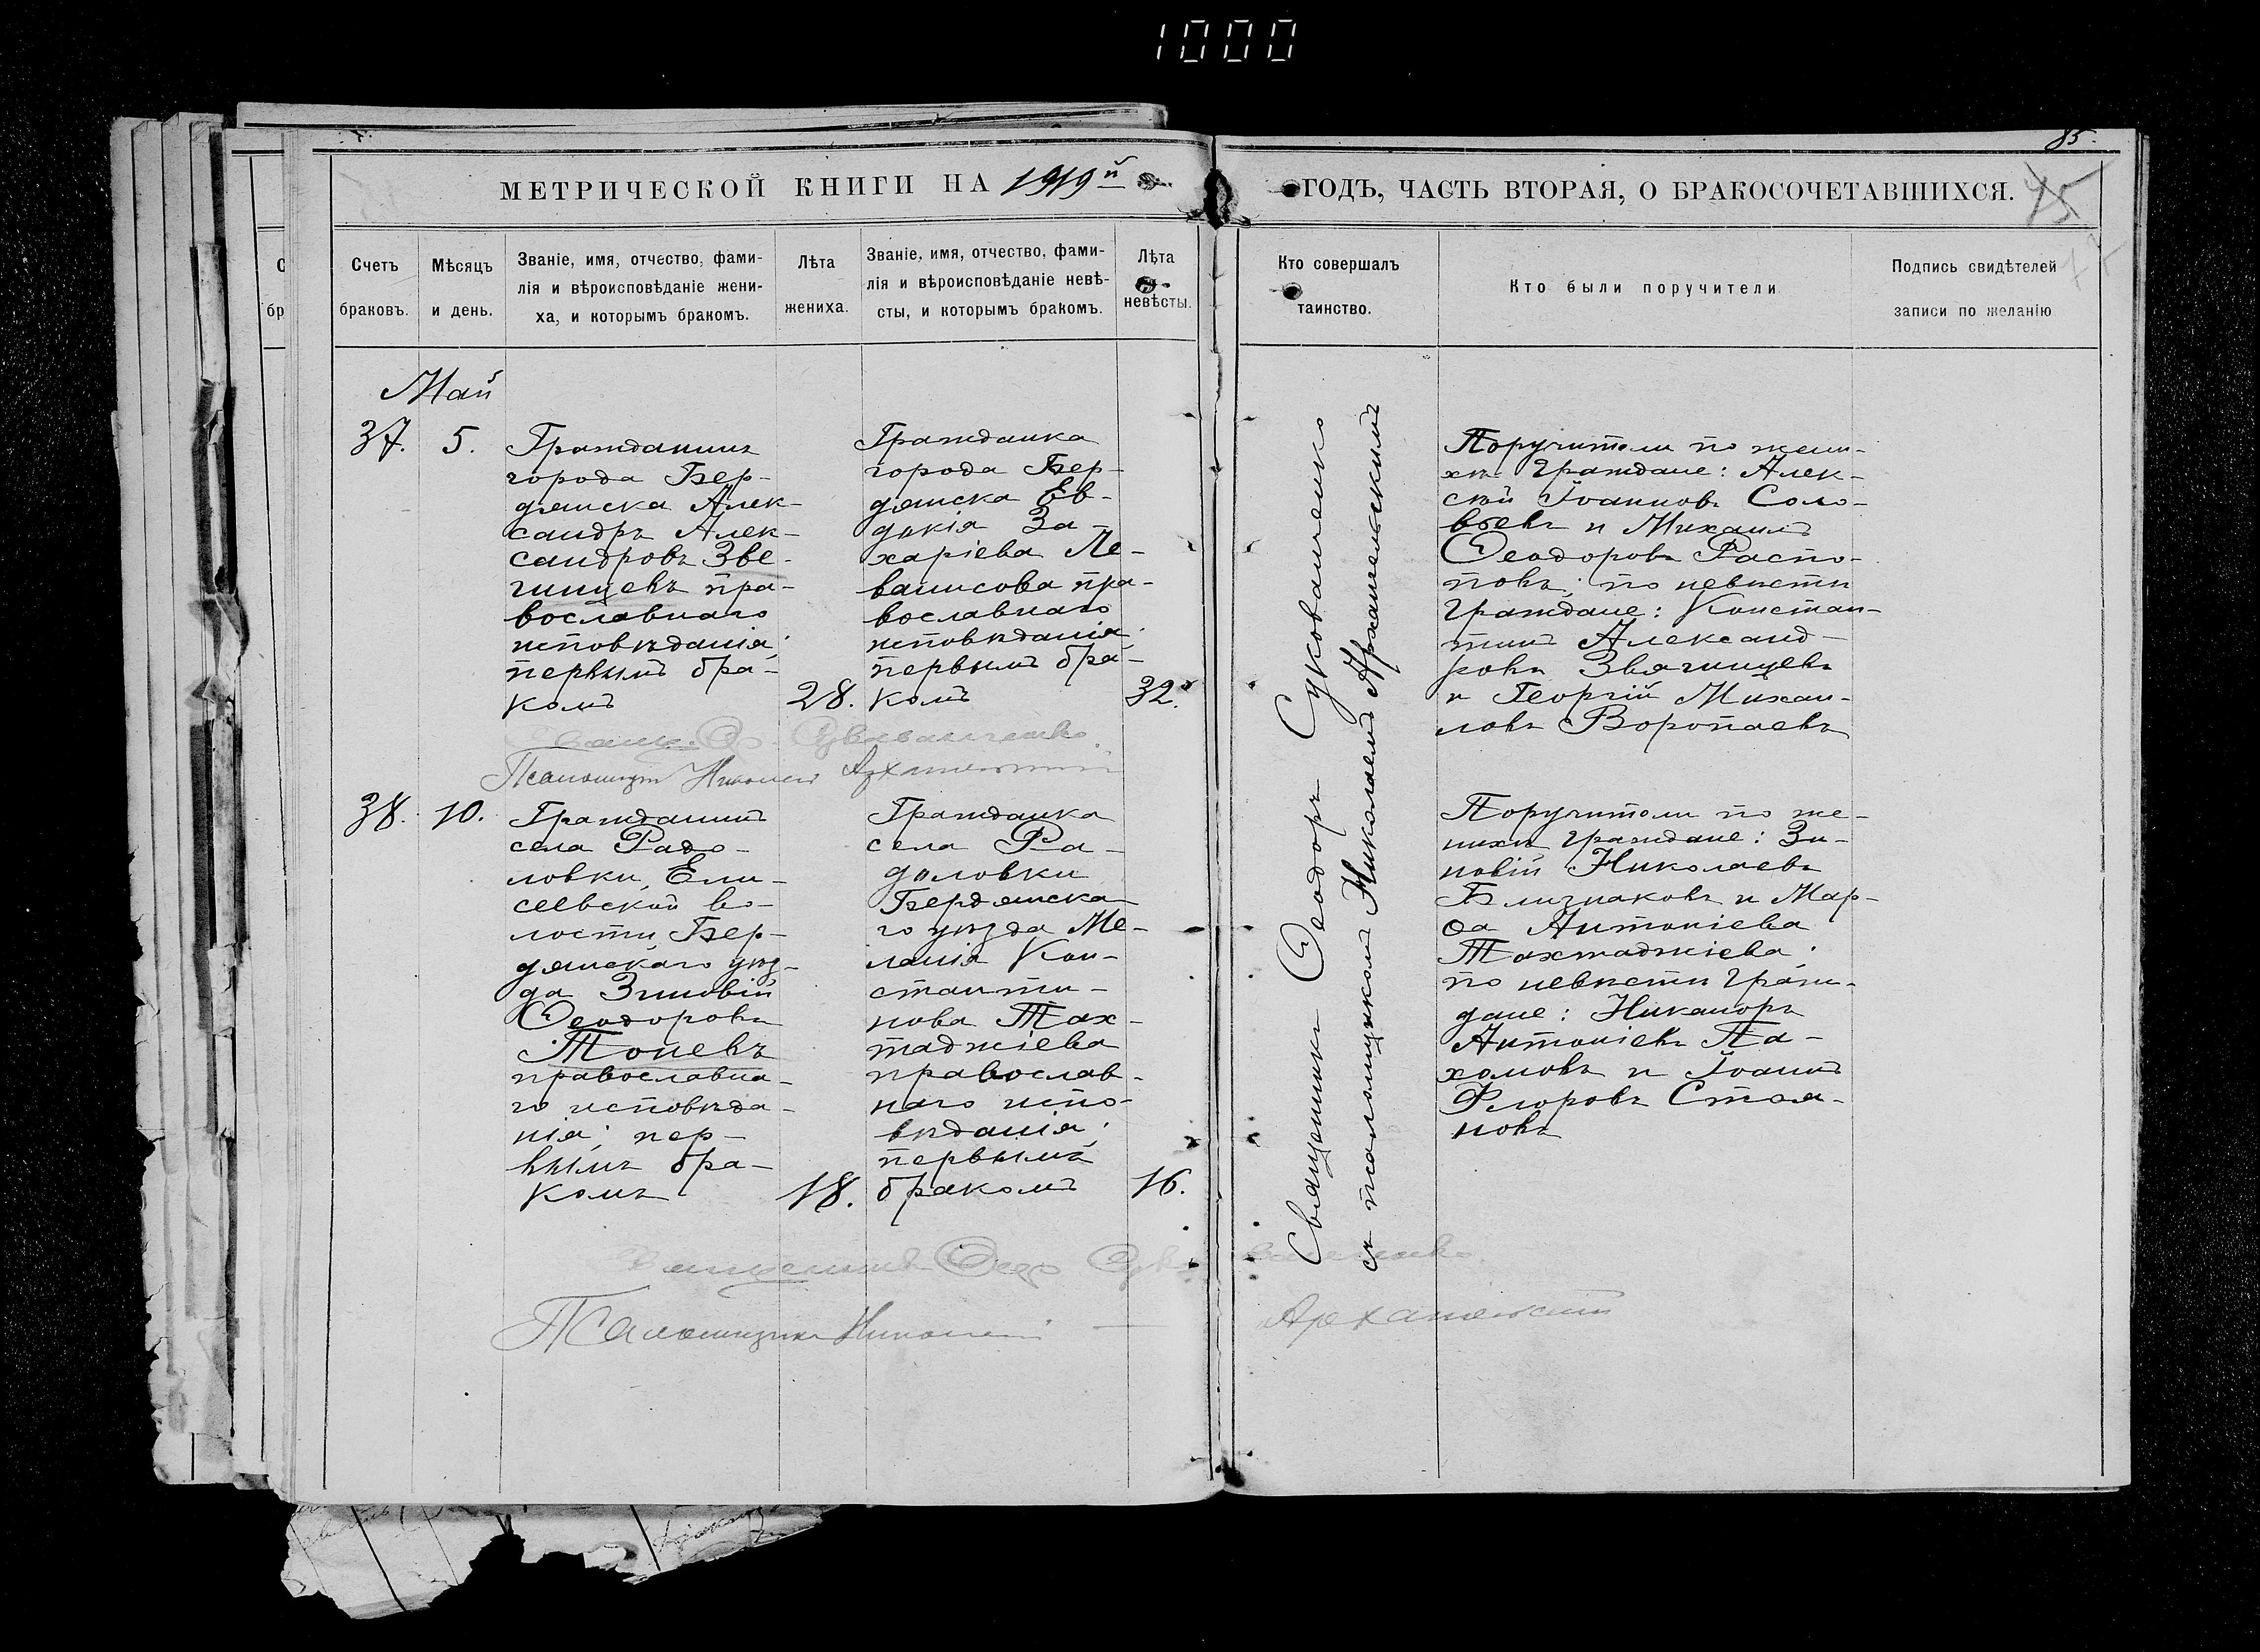 1000
85.
МЕТРИЧЕСКОЙ КНИГИ НА 1919й ГОДЪ, ЧАСТЬ ВТОРАЯ, О БРАКОСОЧЕТАВШИХСЯ.
Счетъ
браковъ.
Мѣсяцъ
и день.
Званіе, имя, отчество, фами-
лія и вѣроисповѣданіе жени-
ха, и которымъ бракомъ.
Лѣта
жениха.
Званіе, имя, отчество, фами-
лія и вѣроисповѣданіе невѣ-
сты, и которымъ бракомъ.
Лѣта
невѣсты.
Кто совершалъ
таинство.
Кто были поручители
Подпись свидѣтелей
записи по желанію
Май
37.
5.
Гражданинъ
города Бер-
дянска Алек-
сандръ Алек-
сандровъ Зве-
гинцевъ пра-
вославнаго
исповѣданія;
первымъ бра-
комъ
28.
Гражданка
города Бер-
дянска Ев-
докія За-
харіева Ле-
ванисова пра-
вославнаго
исповѣданія;
первымъ бра-
комъ
32.
Священникъ Ѳеодоръ Суковаченко
съ псаломщикомъ Николаемъ Архангельскимъ
Поручители по жени-
хѣ граждане: Алек-
сѣй Іоанновъ Соло-
вьевъ и Михаилъ
Ѳеодоровъ Распо-
повъ; по невѣстѣ
граждане: Констан-
тинъ Александ-
ровъ Звягинцевъ
и Георгій Михаи-
ловъ Воропаевъ
Псаломщик Николай Архангельский
38.
10.
Гражданинъ
села Радо-
ловки, Ели-
сеевской во-
лости, Бер-
дянскаго уѣз-
да Зиновій
Ѳеодоровъ
Тоневъ
православна-
го исповѣда-
нія; пер-
вымъ бра-
комъ
18.
Гражданка
села Ра-
доловки
Бердянска-
го уѣзда Ме-
ланія Кон-
станти-
нова Тах-
таджіева
православ-
наго испо-
вѣданія;
первымъ
бракомъ
16.
Поручители по же-
нихѣ граждане: Зи-
новій Николаевъ
Близнаковъ и Мар-
ѳа Антоніева
Тахтаджіева;
по невѣстѣ граж-
дане: Никаноръ
Антоніевъ Па-
хомовъ и Іоаннъ
Флоровъ Стоя-
новъ
Псаломщикъ Николай Архангельский